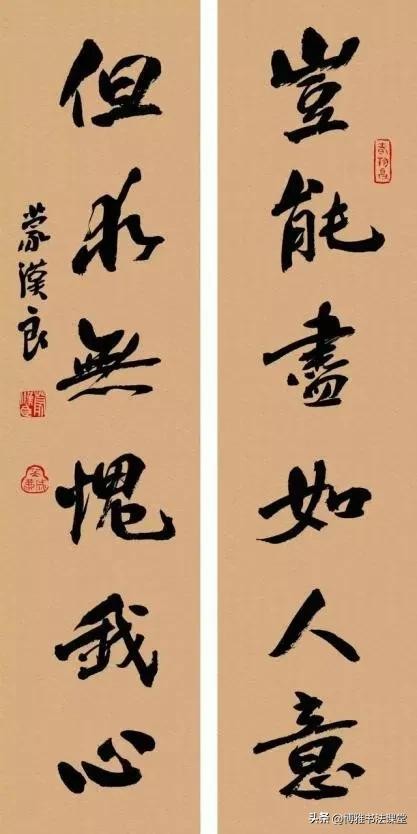 豈能盡如人意
但求無愧我心
蒙漢良
头条@博雅书法课堂